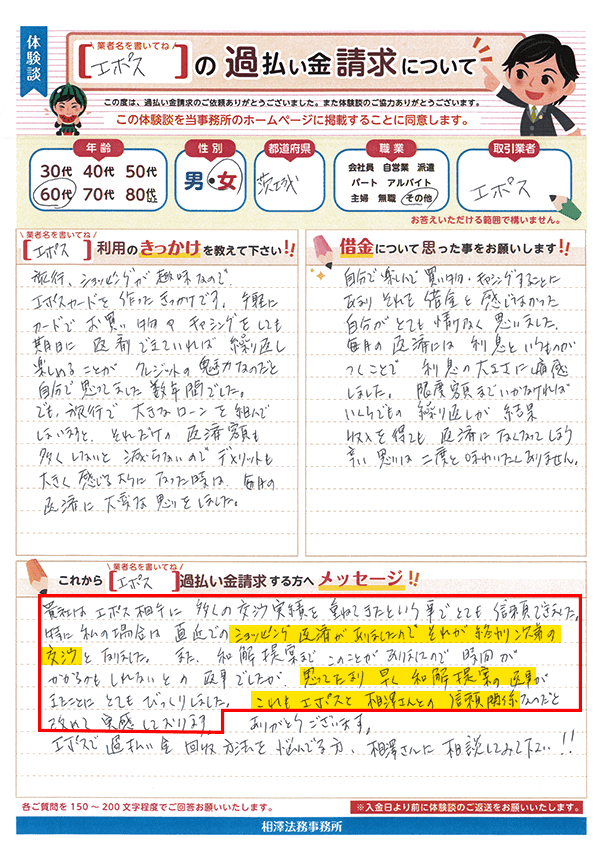 体験談
業者名を書いてね
[エポス]の過払い金請求について
この度は、過払い金請求のご依頼ありがとうございました。また体験談のご協力ありがとうございます。
この体験談を当事務所のホームページに掲載することに同意します。
年齢
30代 40代 50代
60代 70代 80代以上
性別
男・女
都道府県
茨城
職業
会社員 自営業 派遣
パート アルバイト
主婦 無職 その他
取引業者
エポス
お答えいただける範囲で構いません。
業者名を書いてね
[エポス]利用のきっかけを教えて下さい!!
旅行、ショッピングが趣味なので、
エポスカードを作ったきっかけです。手軽に
カードでお買い物やキャシングをしても
期日に返済できていれば繰り返し
楽しめることがクレジットの魅力なのだと
自分で思ってました数年間でした。
でも、旅行で大きなローンを組んで
しまいますと、それだけの返済額も
多くしないと減らないのでデメリットも
大きく感じるようになった時は、毎月の
返済に大変な思いをしました。
借金について思った事をお願いします!!
自分で楽しんで買い物・キャシングすることに
あまりそれを借金と感じなかった
自分がとても情けなく思いました。
毎月の返済には利息というものが
つくことで利息の大きさに痛感
しました。限度額までいかなければ
いくらでもの繰り返しが結果
収入を得ても返済になくなってしまう
辛い思いは二度と味わいたくありません。
業者名を書いてね
これから[エポス]過払い金請求する方へメッセージ!!
貴社はエポス相手に多くの交渉実績を重ねてきたという事でとても信頼できました。
特に私の場合は直近でのショッピング返済がありましたのでそれが終わり次第の
交渉となりました。また、和解提案までこのことがありましたので時間が
かかるかもしれないとの返事でしたが、思ってたより早く和解提案の返事が
きたことにとてもびっくりしました。これもエポスと相澤さんとの信頼関係なのだと
改めて実感しております。ありがとうございます。
エポスで過払い金回収方法を悩んでる方、相澤さんに相談してみて下さい!!
各ご質問を150〜200文字程度でご回答お願いいたします。
※入金日より前に体験談のご返送をお願いいたします。
相澤法務事務所